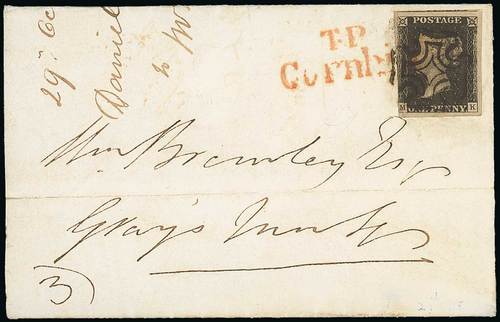 29 Oc
Daniel
to
T.P
Cornhi
POSTAGE
M K
ONE PENNY
Wm Bromley Esq
Grays Inn Sqr
3)